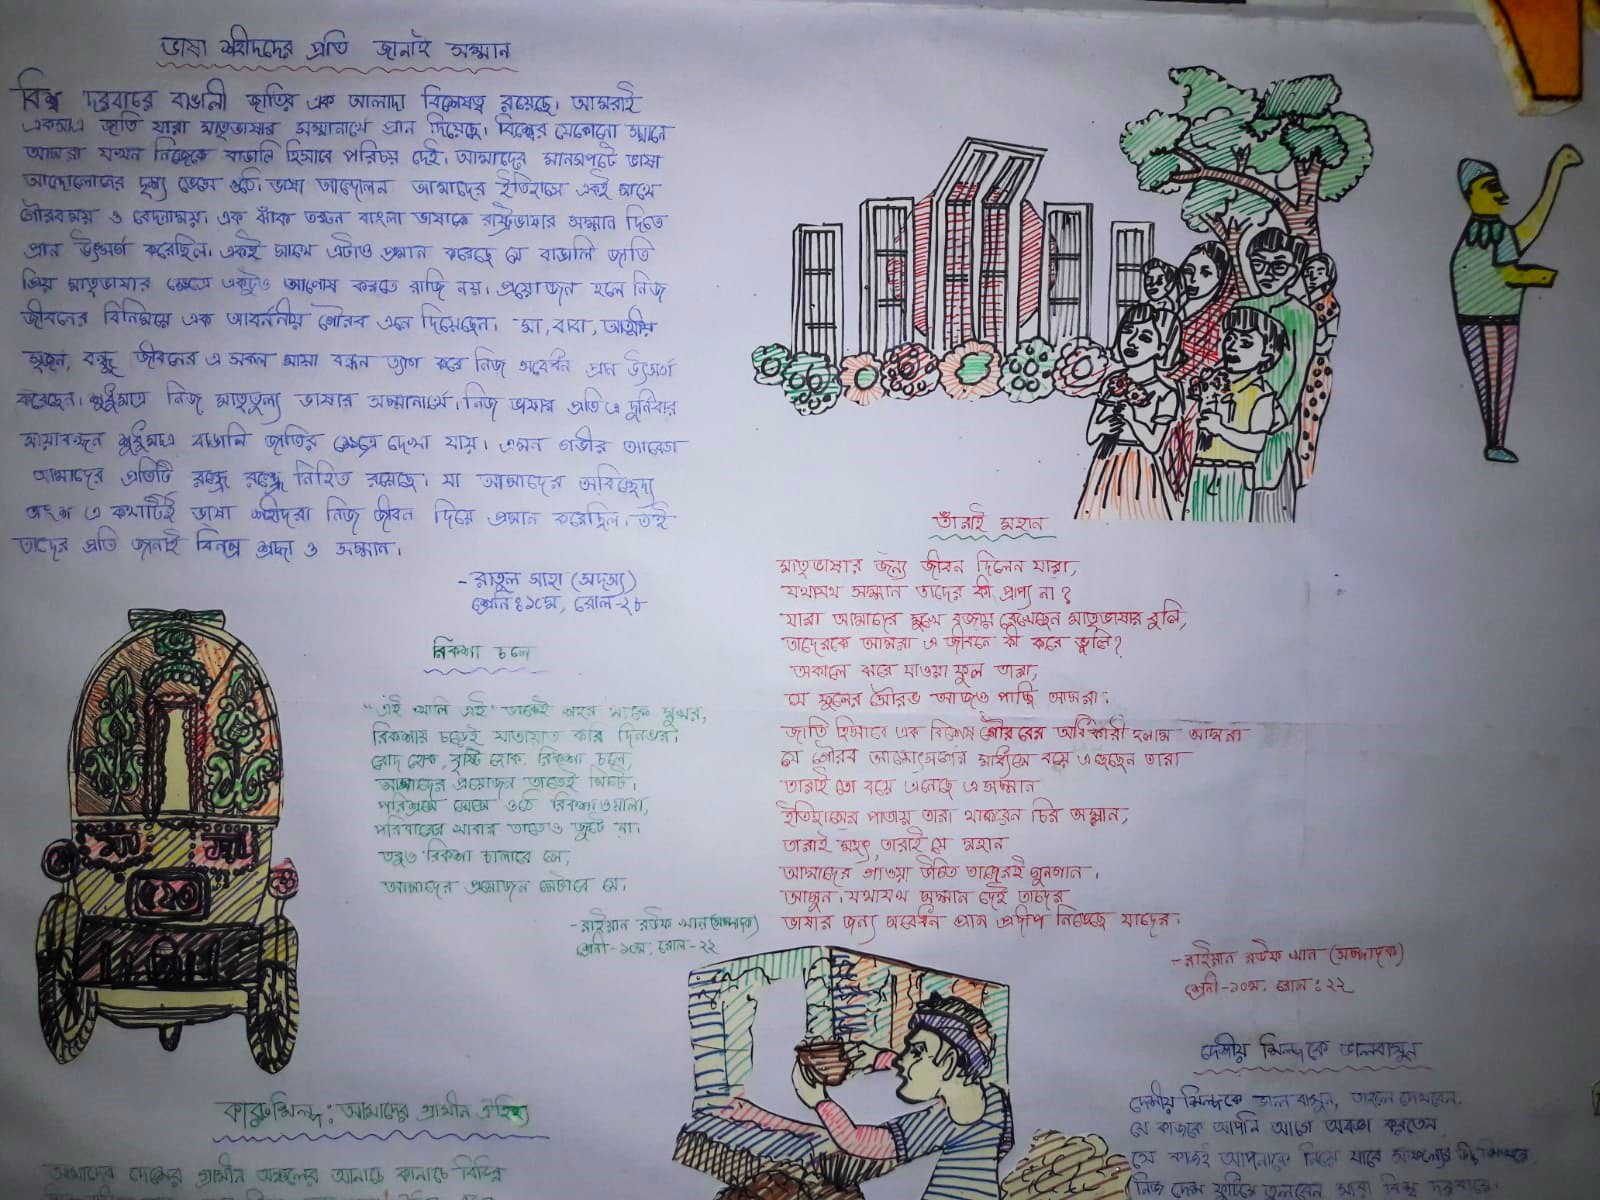 ভাষা শহীদদের প্রতি জানাই সম্মান
বিশ্ব দরবারে বাঙালী জাতির এক আলাদা বিশেষত্ব রয়েছে। আমরাই
একমাত্র জাতি যারা মাতৃভাষার সম্মানার্থে প্রান দিয়েছে। বিশ্বের যেকোনো স্থানে
আমরা যখন নিজেকে বাঙালি হিসাবে পরিচয় দেই, আমাদের মানসপটে ভাষা
আন্দোলোনের দৃশ্য ভেসে ওঠে। ভাষা আন্দোলন আমাদের ইতিহাসে একই সাথে
গৌরবময় ও বেদনাময়। এক ঝাঁক তরুন বাংলা ভাষাকে রাষ্ট্রভাষার সম্মান দিতে
প্রান উৎসর্গ করেছিল। একই সাথে এটাও প্রমান করেছে যে বাঙালি জাতি
প্রিয় মাতৃভাষার ক্ষেত্রে একটুও আপোষ করতে রাজি নয়। প্রয়োজন হলে নিজ
জীবনের বিনিময়ে এক আবর্ননীয় গৌরব এনে দিয়েছেন। মা, বাবা, আত্মীয়
স্বজন, বন্ধু জীবনের এ সকল মায়া বন্ধন ত্যাগ করে নিজ অবেধীন প্রান উৎসর্গ
করেছেন। শুধুমাত্র নিজ মাতৃতুল্য ভাষার সম্মানার্থে। নিজ ভাষার প্রতি এ দুর্নিবার
মায়াবন্ধন শুধুমাত্র বাঙালি জাতির ক্ষেত্রে দেখা যায়। এমন গভীর আবেগ
আমাদের প্রতিটি রন্ধ্রে রন্ধ্রে নিহিত রয়েছে। যা আমাদের অবিচ্ছেদ্য
অংশ এ কথাটিই ভাষা শহীদরা নিজ জীবন দিয়ে প্রমান করেছিল। তাই
তাদের প্রতি জানাই বিনম্র শ্রদ্ধা ও সম্মান।
- রাতুল সাহা (সদস্য)
শ্রেনি: ১০ম, রোল-২৮
রিকশা চলে
"এই খালি এই" ডাকেই
রিকশায় চড়েই যাতায়াত করি দিনভর।
রোদ হোক, বৃষ্টি হোক, রিকশা চলে,
আমাদের প্রয়োজন তাতেই মিটে।
পরিশ্রমে ঘেমে ওঠে রিকশাওয়ালা,
পরিবারের খাবার তাতেও জুটে না।
তবুও রিকশা চালাবে সে,
আমাদের প্রয়োজন মেটাবে সে।
- রাইয়ান রউফ খান (সম্পাদক)
শ্রেনী-১০ম, রোল-২২
তাঁরাই মহান
মাতৃভাষার জন্য জীবন দিলেন যারা,
যথাযথ সম্মান তাদের কী প্রাপ্য না?
যারা আমাদের মুখে বজায় রেখেছেন মাতৃভাষার বুলি,
তাদেরকে আমরা এ জীবনে কী করে ভুলি?
অকালে ঝরে যাওয়া ফুল তারা,
যে ফুলের সৌরভ আজও পাচ্ছি আমরা।
জাতি হিসাবে এক বিশেষ গৌরবের অধিকারী হলাম আমরা
যে গৌরব মাধ্যমে বয়ে এনেছেন তারা
তারাই তো বয়ে এনেছে এ সম্মান
ইতিহাসের পাতায় তারা থাকবেন চির অম্লান,
তারাই মহৎ, তারাই যে মহান
আমাদের গাওয়া উচিত তাদেরই গুনগান।
আসুন, যথাযথ সম্মান দেই তাদের
ভাষার জন্য অবেধীন প্রান প্রদীপ নিভেছে যাদের।
- রাইয়ান রউফ খান (সম্পাদক)
শ্রেনী-১০ম, রোল: ২২
দেশীয় শিল্পকে ভালবাসুন
দেশীয় শিল্পকে ভাল বাসুন, তাহলে দেখবেন,
যে কাজকে আপনি আগে অবজ্ঞা করতেন
সে কাজই আপনাকে নিয়ে যাবে সাফল্যের
নিজ দেশ ফুটিয়ে তুলবেন সারা বিশ্ব দরবারে।
কারুশিল্প: আমাদের গ্রামীন ঐতিহ্য
আমাদের দেশের গ্রামীন অঞ্চলের আনাচে কানাচে বিভিন্ন